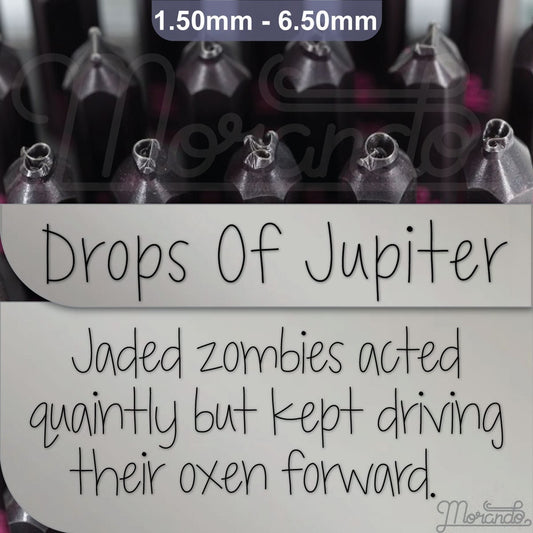 1.50mm - 6.50mm
Morando
Drops Of Jupiter
Jaded zombies acted
quaintly but kept driving
their oxen forward.
Morando